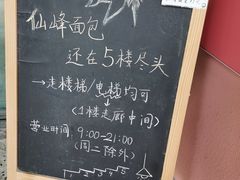 仙峰面包
还在5楼尽头
→走楼梯/电梯均可
<1楼走廊中间>
营业时间：9:00-21:00
(周二除外)